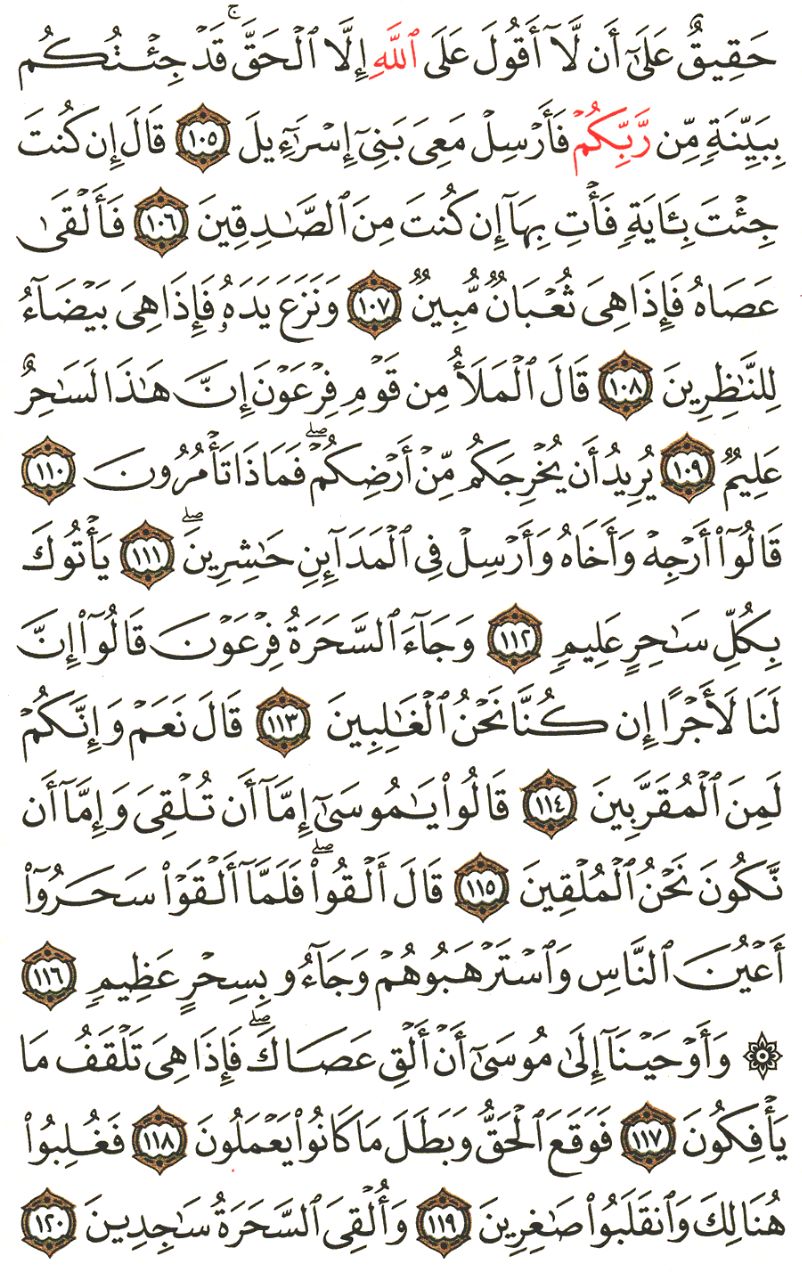 حَقِيقٌ عَلَىٰٓ أَن لَّآ أَقُولَ عَلَى ٱللَّهِ إِلَّا ٱلْحَقَّ ۚ قَدْ جِئْتُكُم
بِبَيِّنَةٍ مِّن رَّبِّكُمْ فَأَرْسِلْ مَعِىَ بَنِىٓ إِسْرَٰٓءِيلَ ١٠٥ قَالَ إِن كُنتَ
جِئْتَ بِـَٔايَةٍ فَأْتِ بِهَآ إِن كُنتَ مِنَ ٱلصَّـٰدِقِينَ ١٠٦ فَأَلْقَىٰ
عَصَاهُ فَإِذَا هِىَ ثُعْبَانٌ مُّبِينٌ ١٠٧ وَنَزَعَ يَدَهُۥ فَإِذَا هِىَ بَيْضَآءُ
لِلنَّـٰظِرِينَ ١٠٨ قَالَ ٱلْمَلَأُ مِن قَوْمِ فِرْعَوْنَ إِنَّ هَـٰذَا لَسَـٰحِرٌ
عَلِيمٌ ١٠٩ يُرِيدُ أَن يُخْرِجَكُم مِّنْ أَرْضِكُمْ ۖ فَمَاذَا تَأْمُرُونَ ١١٠
قَالُوٓا۟ أَرْجِهْ وَأَخَاهُ وَأَرْسِلْ فِى ٱلْمَدَآئِنِ حَـٰشِرِينَ ۖ ١١١ يَأْتُوكَ
بِكُلِّ سَـٰحِرٍ عَلِيمٍ ١١٢ وَجَآءَ ٱلسَّحَرَةُ فِرْعَوْنَ قَالُوٓا۟ إِنَّ
لَنَا لَأَجْرًا إِن كُنَّا نَحْنُ ٱلْغَـٰلِبِينَ ١١٣ قَالَ نَعَمْ وَإِنَّكُمْ
لَمِنَ ٱلْمُقَرَّبِينَ ١١٤ قَالُوا۟ يَـٰمُوسَىٰٓ إِمَّآ أَن تُلْقِىَ وَإِمَّآ أَن
نَّكُونَ نَحْنُ ٱلْمُلْقِينَ ١١٥ قَالَ أَلْقُوا۟ ۖ فَلَمَّآ أَلْقَوْا۟ سَحَرُوٓا۟
أَعْيُنَ ٱلنَّاسِ وَٱسْتَرْهَبُوهُمْ وَجَآءُو بِسِحْرٍ عَظِيمٍ ١١٦
۞ وَأَوْحَيْنَآ إِلَىٰ مُوسَىٰٓ أَنْ أَلْقِ عَصَاكَ ۖ فَإِذَا هِىَ تَلْقَفُ مَا
يَأْفِكُونَ ١١٧ فَوَقَعَ ٱلْحَقُّ وَبَطَلَ مَا كَانُوا۟ يَعْمَلُونَ ١١٨ فَغُلِبُوا۟
هُنَالِكَ وَٱنقَلَبُوا۟ صَـٰغِرِينَ ١١٩ وَأُلْقِىَ ٱلسَّحَرَةُ سَـٰجِدِينَ ١٢٠